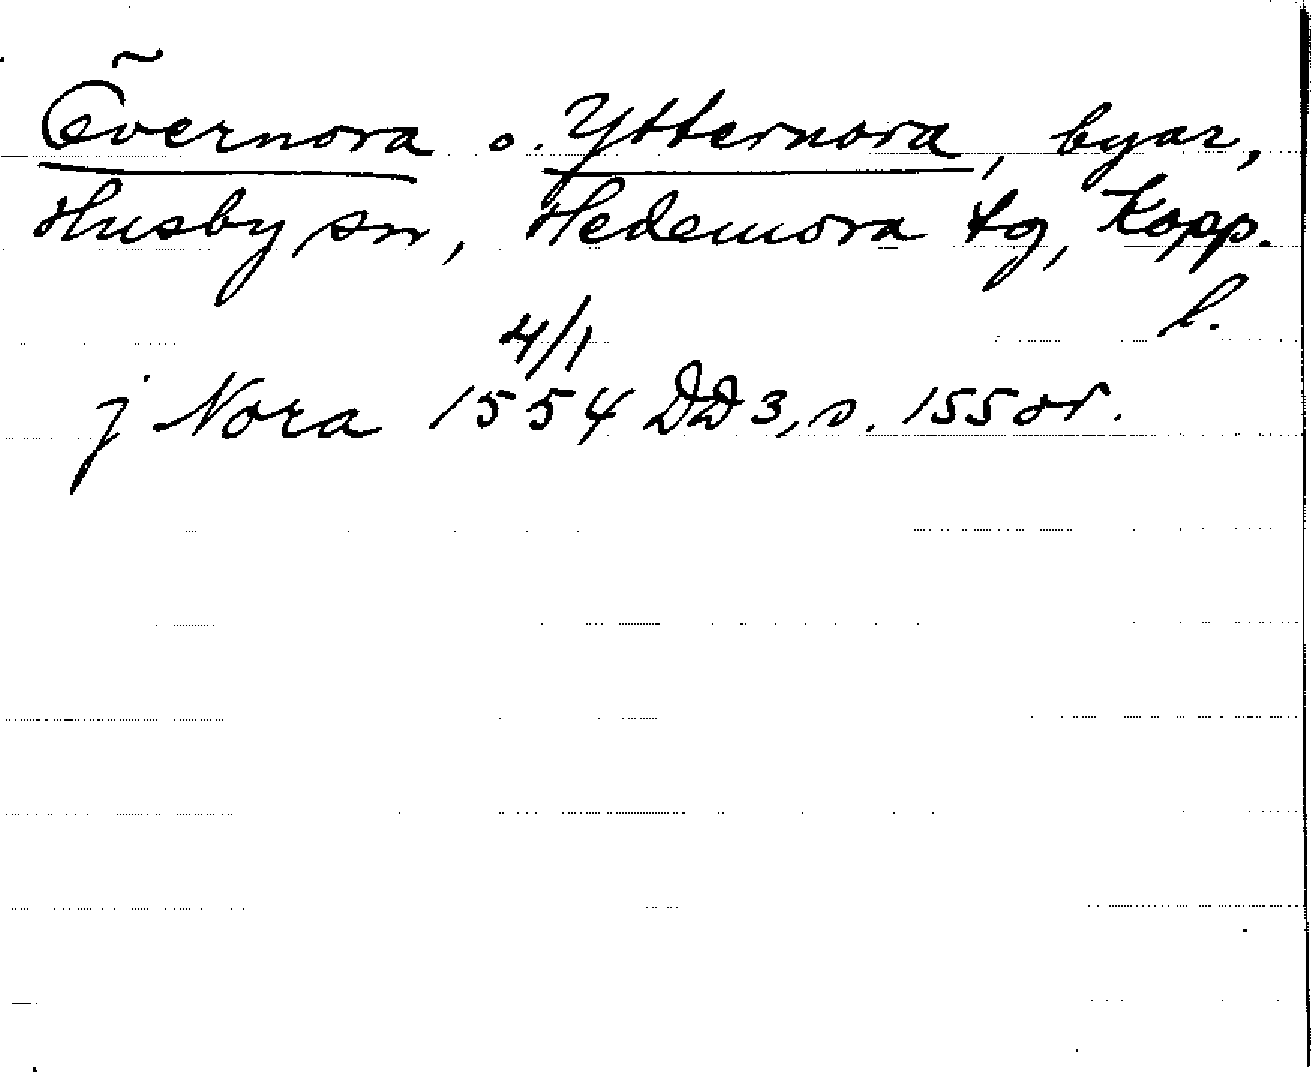 Övernora o.Ytternora, byar,
Husby sn, Hedemora tg, Kopp.
l.
4/1
j Nora 1554 DD 3, s. 155 or.